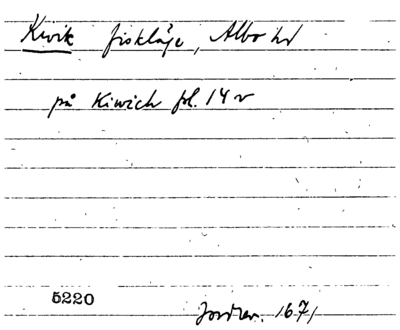 Kivik fiskläge, Albo hd
på Kiwich fol. 14 v
5220
Jordrev. 1671